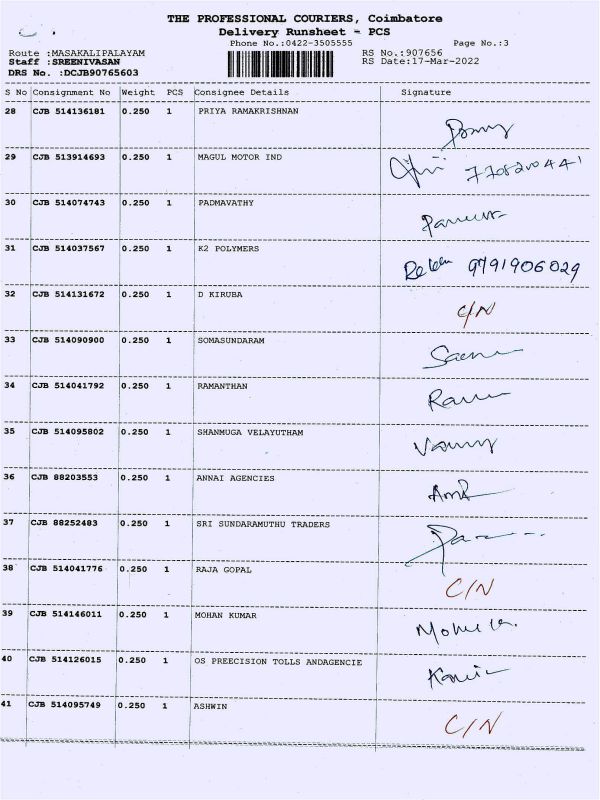 THE PROFESSIONAL COURIERS, Coimbatore
Delivery Runsheet - PCS
Phone No.:0422-3505555 Page No.:3
Route :MASAKALIPALAYAM RS No.:907656
Staff :SREENIVASAN RS Date:17-Mar-2022
DRS No. :DCJB90765603
S No Consignment No Weight PCS Consignee Details Signature
28 CJB 514136181 0.250 1 PRIYA RAMAKRISHNAN
29 CJB 513914693 0.250 1 MAGUL MOTOR IND
30 CJB 514074743 0.250 1 PADMAVATHY
31 CJB 514037567 0.250 1 K2 POLYMERS 9791906029
32 CJB 514131672 0.250 1 D KIRUBA C/N
33 CJB 514090900 0.250 1 SOMASUNDARAM
34 CJB 514041792 0.250 1 RAMANTHAN
35 CJB 514095802 0.250 1 SHANMUGA VELAYUTHAM
36 CJB 88203553 0.250 1 ANNAI AGENCIES
37 CJB 88252483 0.250 1 SRI SUNDARAMUTHU TRADERS
38 CJB 514041776 0.250 1 RAJA GOPAL C/N
39 CJB 514146011 0.250 1 MOHAN KUMAR
40 CJB 514126015 0.250 1 OS PREECISION TOLLS ANDAGENCIE
41 CJB 514095749 0.250 1 ASHWIN C/N